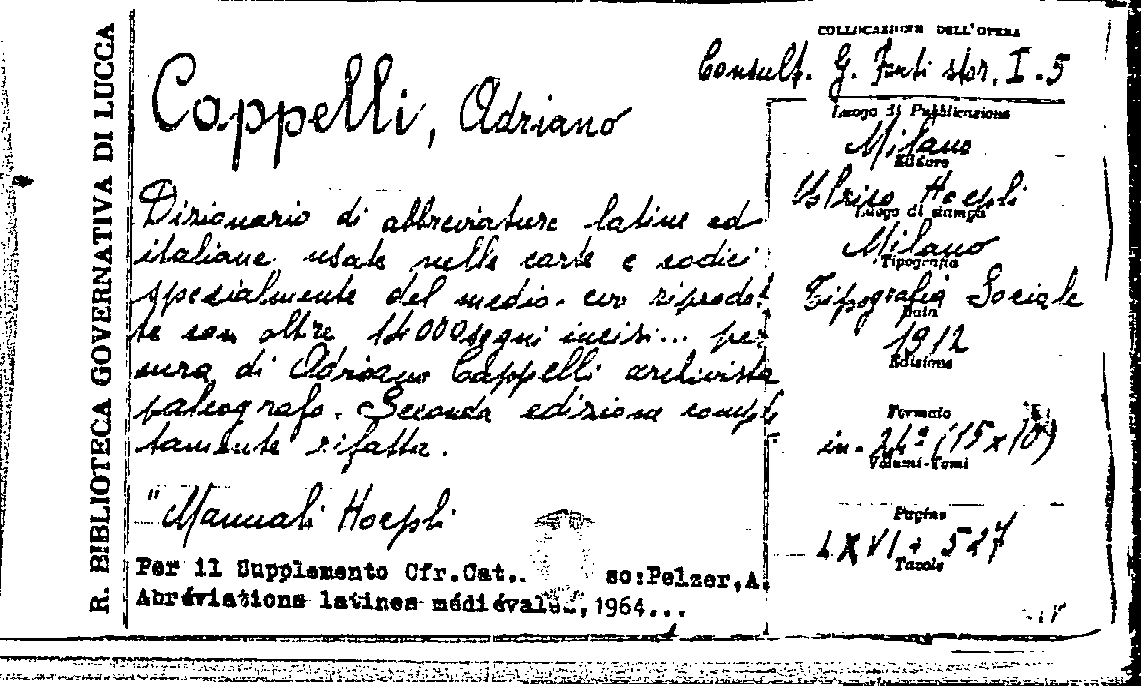 R. BIBLIOTECA GOVERNATIVA DI LUCCA
COLLOCAZIONE DELL'OPERA
Consult. G. Fonti stor. I. 5
Cappelli, Adriano
Dizionario di abbreviature latine ed
italiane usate nelle carte e codici
specialmente del medio-evo riprodot
te con oltre 14000 segni incisi... per
cura di Adriano Cappelli archivista
paleografo. Seconda edizione comple
tamente rifatta.
"Manuali Hoepli
Per il Supplemento Cfr.Cat.. so:Pelzer,A.
Abréviations latines médiévales, 1964...
Luogo di Pubblicazione
Milano
Editore
Ulrico Hoepli
Luogo di stampa
Milano
Tipografia
Tipografia Sociale
Data
1912
Edizione
Formato
in-24º (15x10)
Volumi-Tomi
Pagine
LXVI+527
Tavole